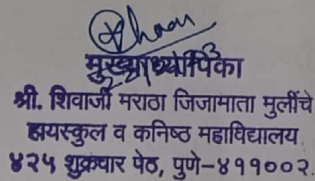 मुख्याध्यापिका
श्री. शिवाजी मराठा जिजामाता मुलींचे
हायस्कुल व कनिष्ठ महाविद्यालय
४२५ शुक्रवार पेठ, पुणे-४११००२.